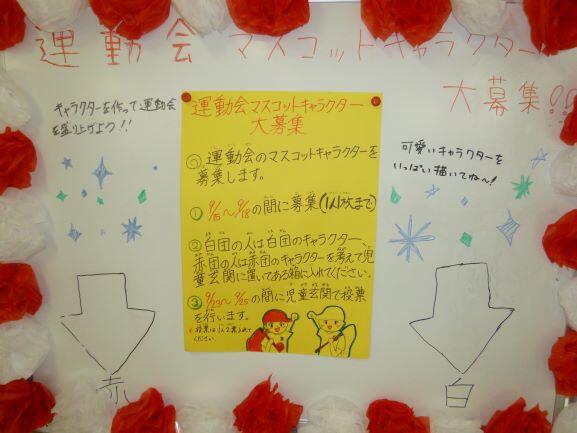 運動会 マスコットキャラクター
大募集!!
キャラクターを作って運動会
を盛り上げよう!!
運動会マスコットキャラクター
大募集
運動会のマスコットキャラクターを
募集します。
① 9/16～9/18の間に募集(1人1枚まで)
②白団の人は白団のキャラクター、
赤団の人は赤団のキャラクターを考えて児
童玄関に置いてある箱に入れてください。
③ 9/23～9/25の間に児童玄関で投票
を行います。
ください。
可愛いキャラクターを
いっぱい描いてね～!
赤
白